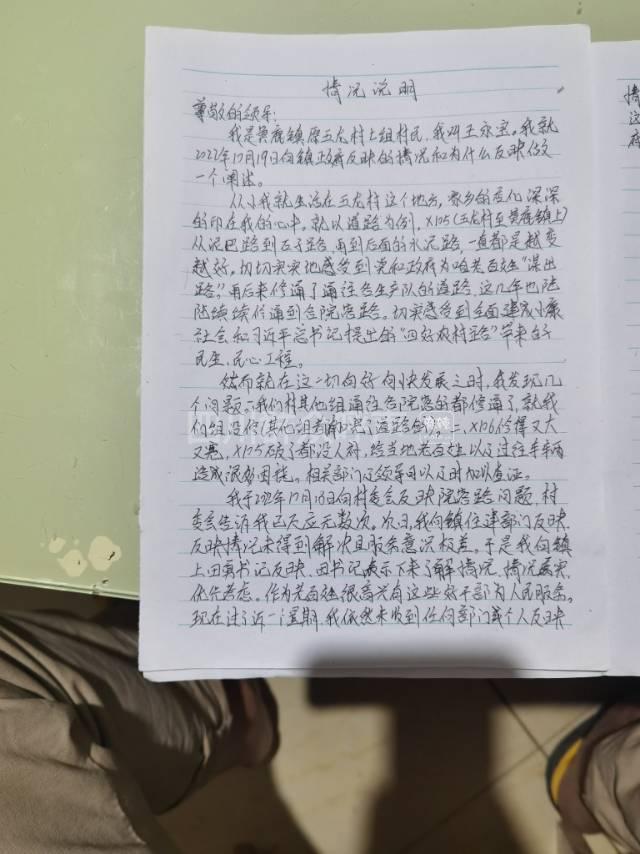 情况说明
尊敬的领导：
我是黄鹿镇原五龙村七组村民，我叫王永宝。我就
2022年12月19日向镇政府反映的情况和为什么反映做
一个阐述。
从小我就生活在五龙村这个地方，家乡的变化深深
的印在我的心中。就以道路为例，X125(五龙村至黄鹿镇上)
从泥巴路到石子路，再到后面的水泥路，一直都是越变
越好。切切实实地感受到党和政府为咱老百姓“谋出
路”，再后来修通了通往各生产队的道路，这几年也陆
陆续续修通到各院落路。切实感受到全面建成小康
社会和习近平总书记提出的“四好农村路”带来的
民生、民心工程。
然而就在这一切向好向快发展之时，我发现几
个问题：我们村其他组通往各院落的都修通了，就我
们组没修(其他组
又宽，X125破了都没人府，给当地老百姓以及过往车辆
造成很多困扰。相关部门及领导可以及时加以查证。
我于2022年12月16日向村委会反映院落路问题，村
委会告诉我已大应无数次。次日，我向镇住建部门反映，
反映情况未得到解决且服务意识极差。于是我向镇
上田勇书记反映，田书记表示下来了解情况，情况属实，
优先考虑。作为老百姓很高兴有这些好干部为人民服务。
现在过了近一星期，我依然未收到任何部门或个人反映
情
这
府